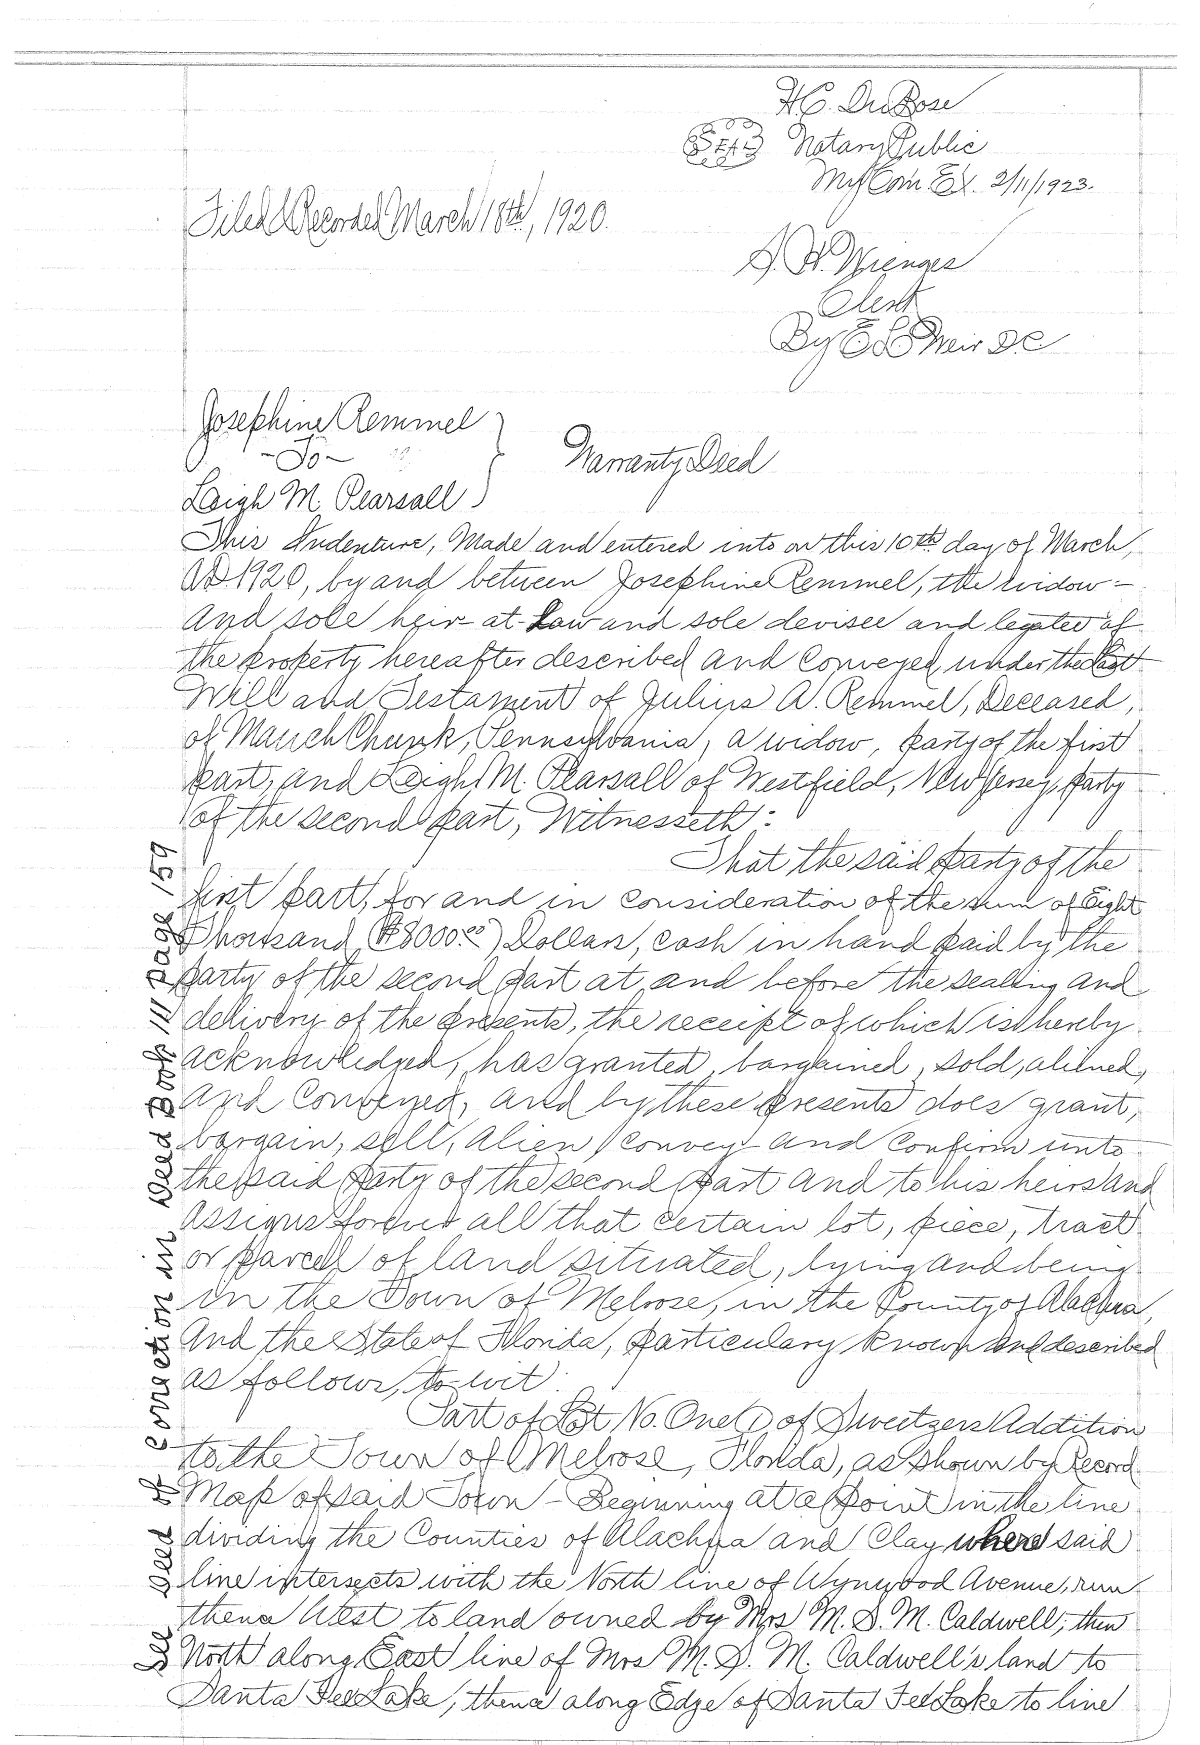 H.C. DuBose
SEAL Notary Public
My Com. Ex. 2/11/1923.
Filed & Recorded March 18th, 1920.
S. H. Wienges
Clerk
By E L Weir D.C.
Josephine Remmel
-To-
Leigh M. Pearsall
Warranty Deed
This Indenture, Made and entered into on this 10th day of March,
AD 1920, by and between Josephine Remmel, the widow-
and sole heir-at-Law and sole devisee and legatee of
the property hereafter described and conveyed, under the Last
Will and Testament of Julius A. Remmel, Deceased,
of Mauch Chunk, Pennsylvania, a widow, party of the first
part, and Leigh M. Pearsall of Westfield, New Jersey, party
of the second part, Witnesseth:
That the said party of the
first part, for and in consideration of the sum of Eight
Thousand ($8000.00) Dollars, cash in hand paid by the
party of the second part at, and before the sealing and
delivery of the presents, the receipt of which is hereby
acknowledged, has granted, bargained, sold, aliened,
and conveyed, and by these presents does grant,
bargain, sell, alien, convey and confirm unto
the said party of the second part and to his heirs and
assigns forever all that certain lot, piece, tract
or parcell of land situated, lying and being
in the Town of Melrose, in the County of Alachua,
and the State of Florida, particulary known and described
as follows, to-wit:
Part of Lot No. One (1) of Sweetzers Addition
to the Town of Melrose, Florida, as shown by Record
Map of said Town - Beginning at a point in the line
dividing the Counties of Alachua and Clay where said
line intersects with the North line of Wynwood Avenue, run
thence West to land owned by Mrs M. S. M. Caldwell; then
North along East line of Mrs M. S. M. Caldwell's land to
Santa Fee Lake, thence along Edge of Santa Fee Lake to line
See Deed of Correction in Deed Book 111 Page 159